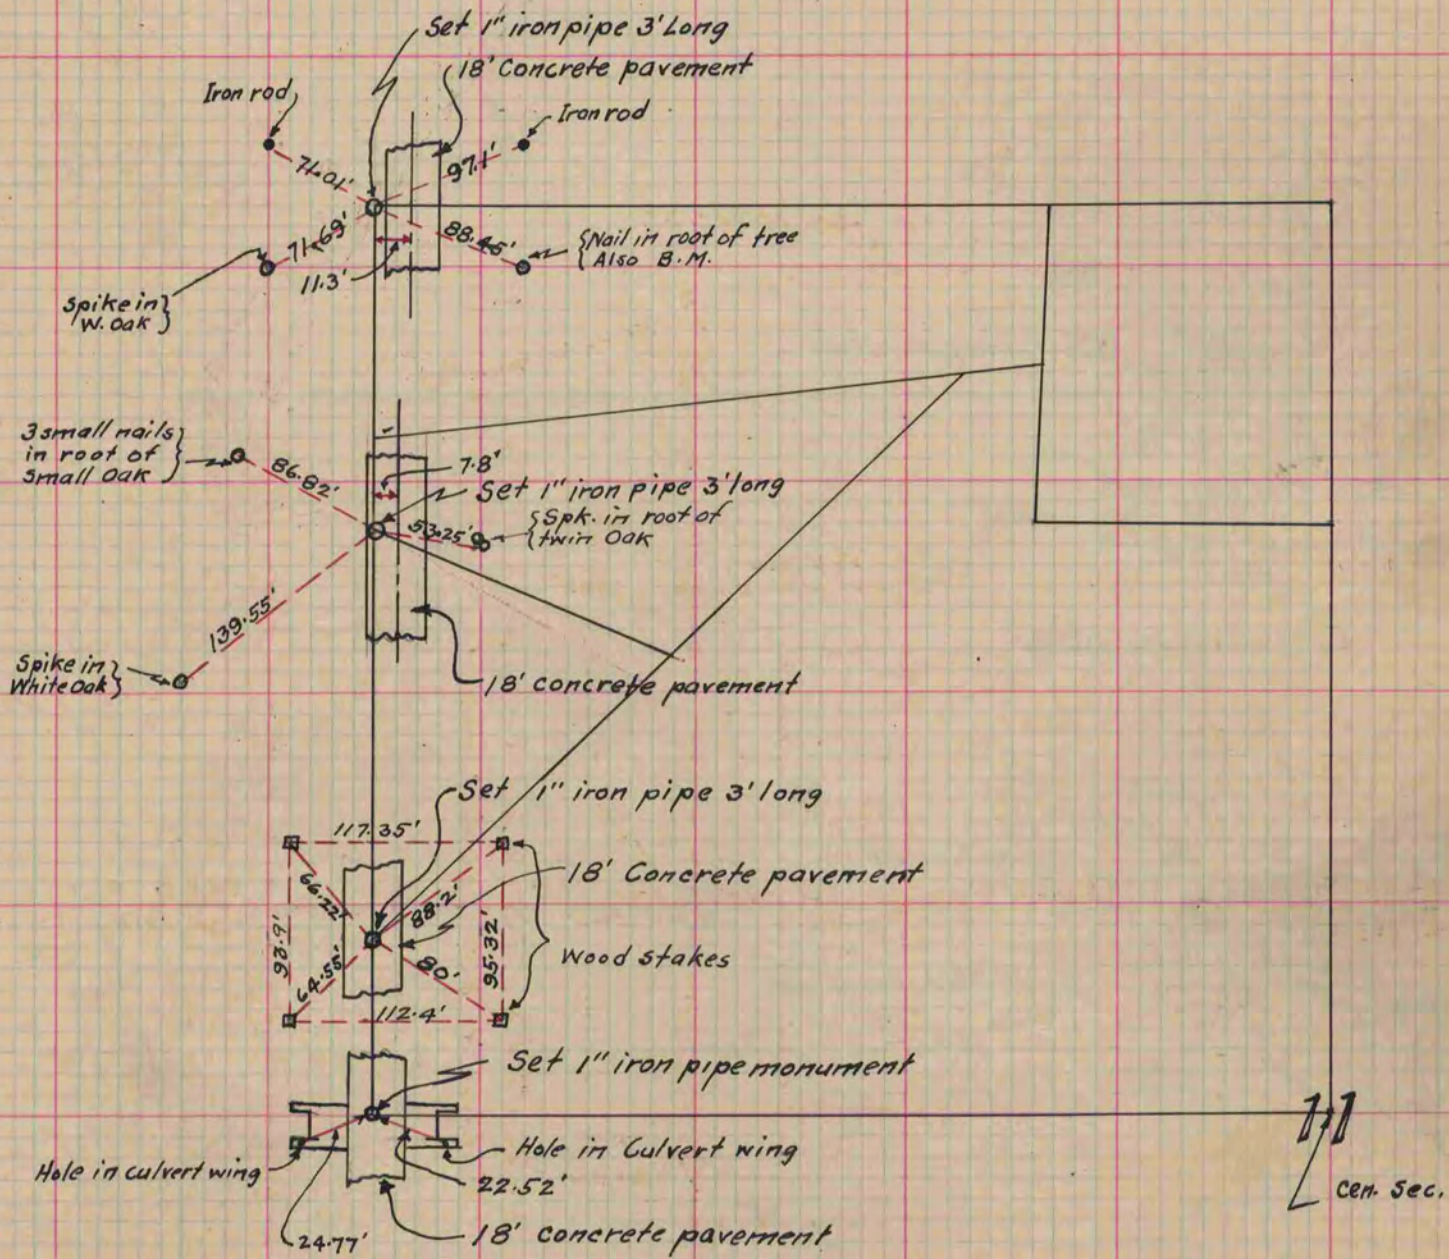 Set 1" iron pipe 3' Long
18' Concrete pavement
Iron rod
Iron rod
71.01'
97.1'
71.69'
88.45'
{Nail in root of tree
Also B.M.
11.3'
Spike in}
W. Oak
3 small nails}
in root of
Small Oak
86.82'
7.8'
Set 1" iron pipe 3' long
53.25'
{Spk. in root of
twin Oak
139.55'
Spike in}
White Oak}
18' concrete pavement
Set 1" iron pipe 3' long
117.35'
18' Concrete pavement
66.22'
88.2'
93.9'
95.32'
Wood stakes
64.55'
80'
112.4'
Set 1" iron pipe monument
11
Hole in Culvert wing
Hole in culvert wing
22.52'
Cen. Sec.
24.77'
18' concrete pavement